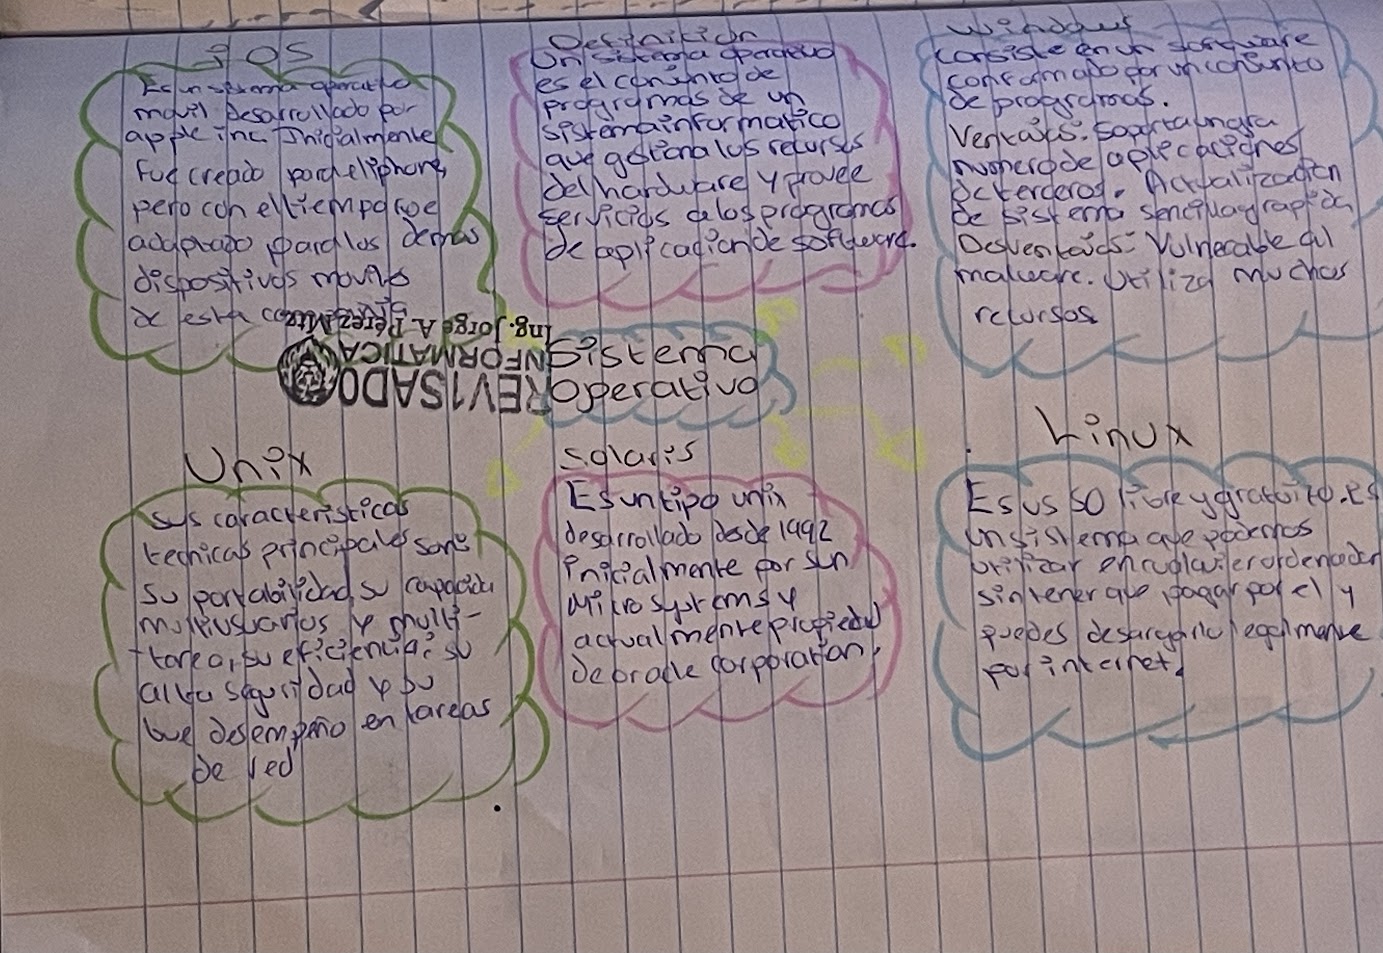 iOS
Es un sistema operativo
movil desarrollado por
apple inc. Inicialmente
fue creado para el iphone,
pero con el tiempo fue
adaptado para los demas
dispositivos moviles
de esta
Definition
Un sistema operativo
es el conjunto de
programas de un
sistema informatico
que gestiona los recursos
del hardware y provee
servicios a los programas
de aplicacion de software.
Windows
consiste en un software
conformado por un conjunto
de programas.
Ventajas: Soporta un gra
numero de aplicaciones
de terceros. Actualización
de sistema sencilla y rapida
Desventajas: Vulnerable al
malware. Utiliza muchos
recursos
Sistema
Operativo
REV1SADO
INFORMATICA
Ing. Jorge A. Pérez Mtz
Unix
sus caracteristicas
tecnicas principales son:
su portabilidad, su capacida
multiusuarios y multi-
tarea, su eficiencia, su
alta seguridad y su
bue desempeño en tareas
de red
Solaris
Es un tipo unix
desarrollado desde 1992
inicialmente por sun
Microsystems y
actualmente propiedad
de oracle corporation.
Linux
Es us SO libre y gratuito. Es
un sistema que podemos
utilizar en cualquier ordenador
sin tener que pagar por el y
puedes desargarlo legalmente
por internet.